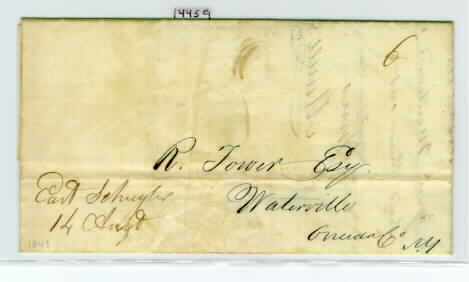 14459
6
R. Tower Esq.
Waterville
Oneida Co. NY
East Schuyler
14 Augt